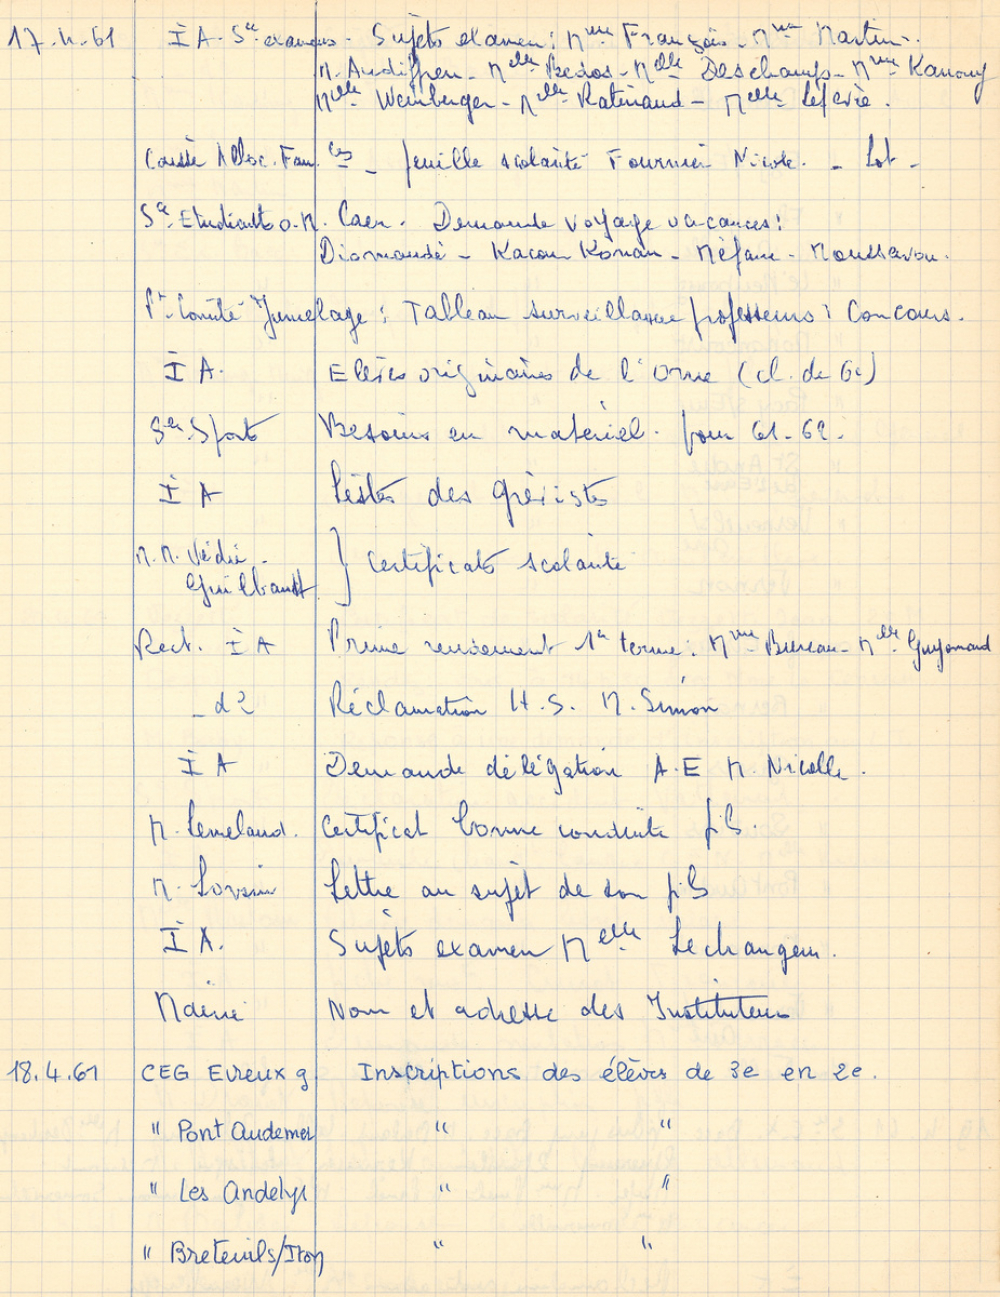 17.4.61 I A. Sce examens - Sujets examen: Mme François - Mme Martin -
M. Audiffren - Melle Bedos - Melle Deschamps - Mme Kanouy
Melle Weinberger - Melle Ratinaud - Melle Lefèvre.
Caisse Alloc. Fam.les - feuille scolarité Fournier Nicole. - Lot -
Sce Etudiants O.M. Caen - Demande voyage vacances:
Diamandé - Kacou Konan - Méfane - Moussavou.
Pt. Comité Jumelage: Tableau surveillance professeurs: Concours.
I A. Elèves originaires de l'Orne (cl. de 6e)
Sce. Sports Besoins en matériel. pour 61-62.
I A Listes des grévistes
M.M. Védié -
Guilbault } Certificats scolarité
Rect. I A Prime rendement 1er terme: Mme Bureau - Melle Guyomard
- do Réclamation H.S. M. Simon
I A Demande délégation A.E M. Nicolle.
M. Lemeland. Certificat bonne conduite fils.
M. Lorsin Lettre au sujet de son fils
I A. Sujets examen Melle Lechangeur.
Mairie Nom et adresse des Instituteurs
18.4.61 CEG Evreux g. Inscriptions des élèves de 3e en 2e.
" Pont Audemer " "
" Les Andelys " "
" Breteuils/Iton " "